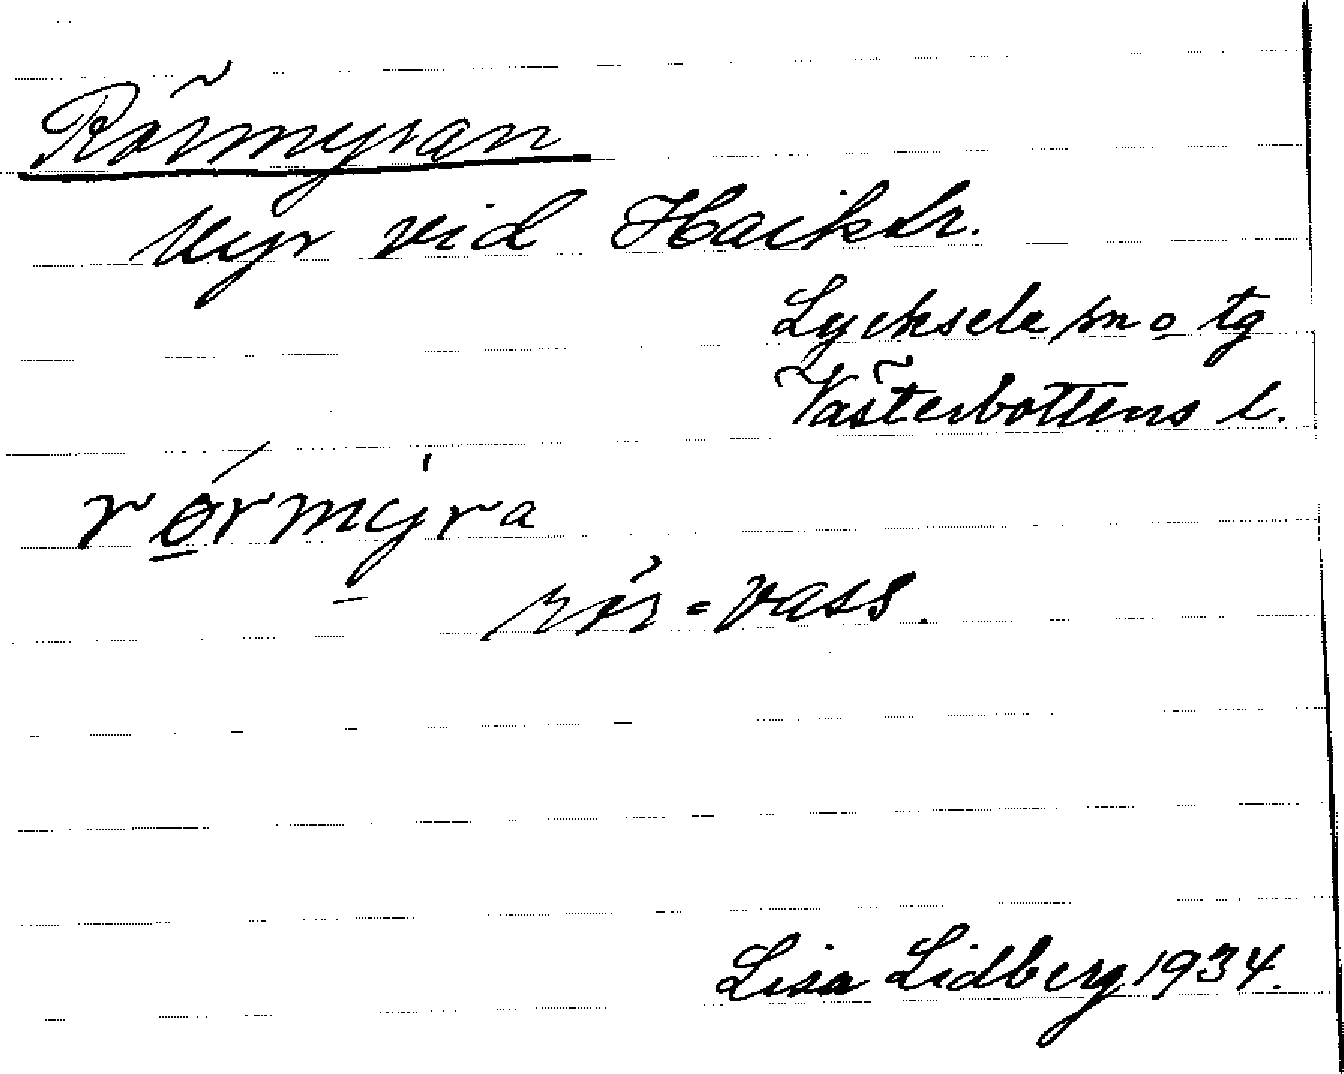 Rörmyran
Myr vid
Lycksele sn o tg
Västerbottens l.
rörmyra
rör = vass.
Lisa Lidberg 1934.